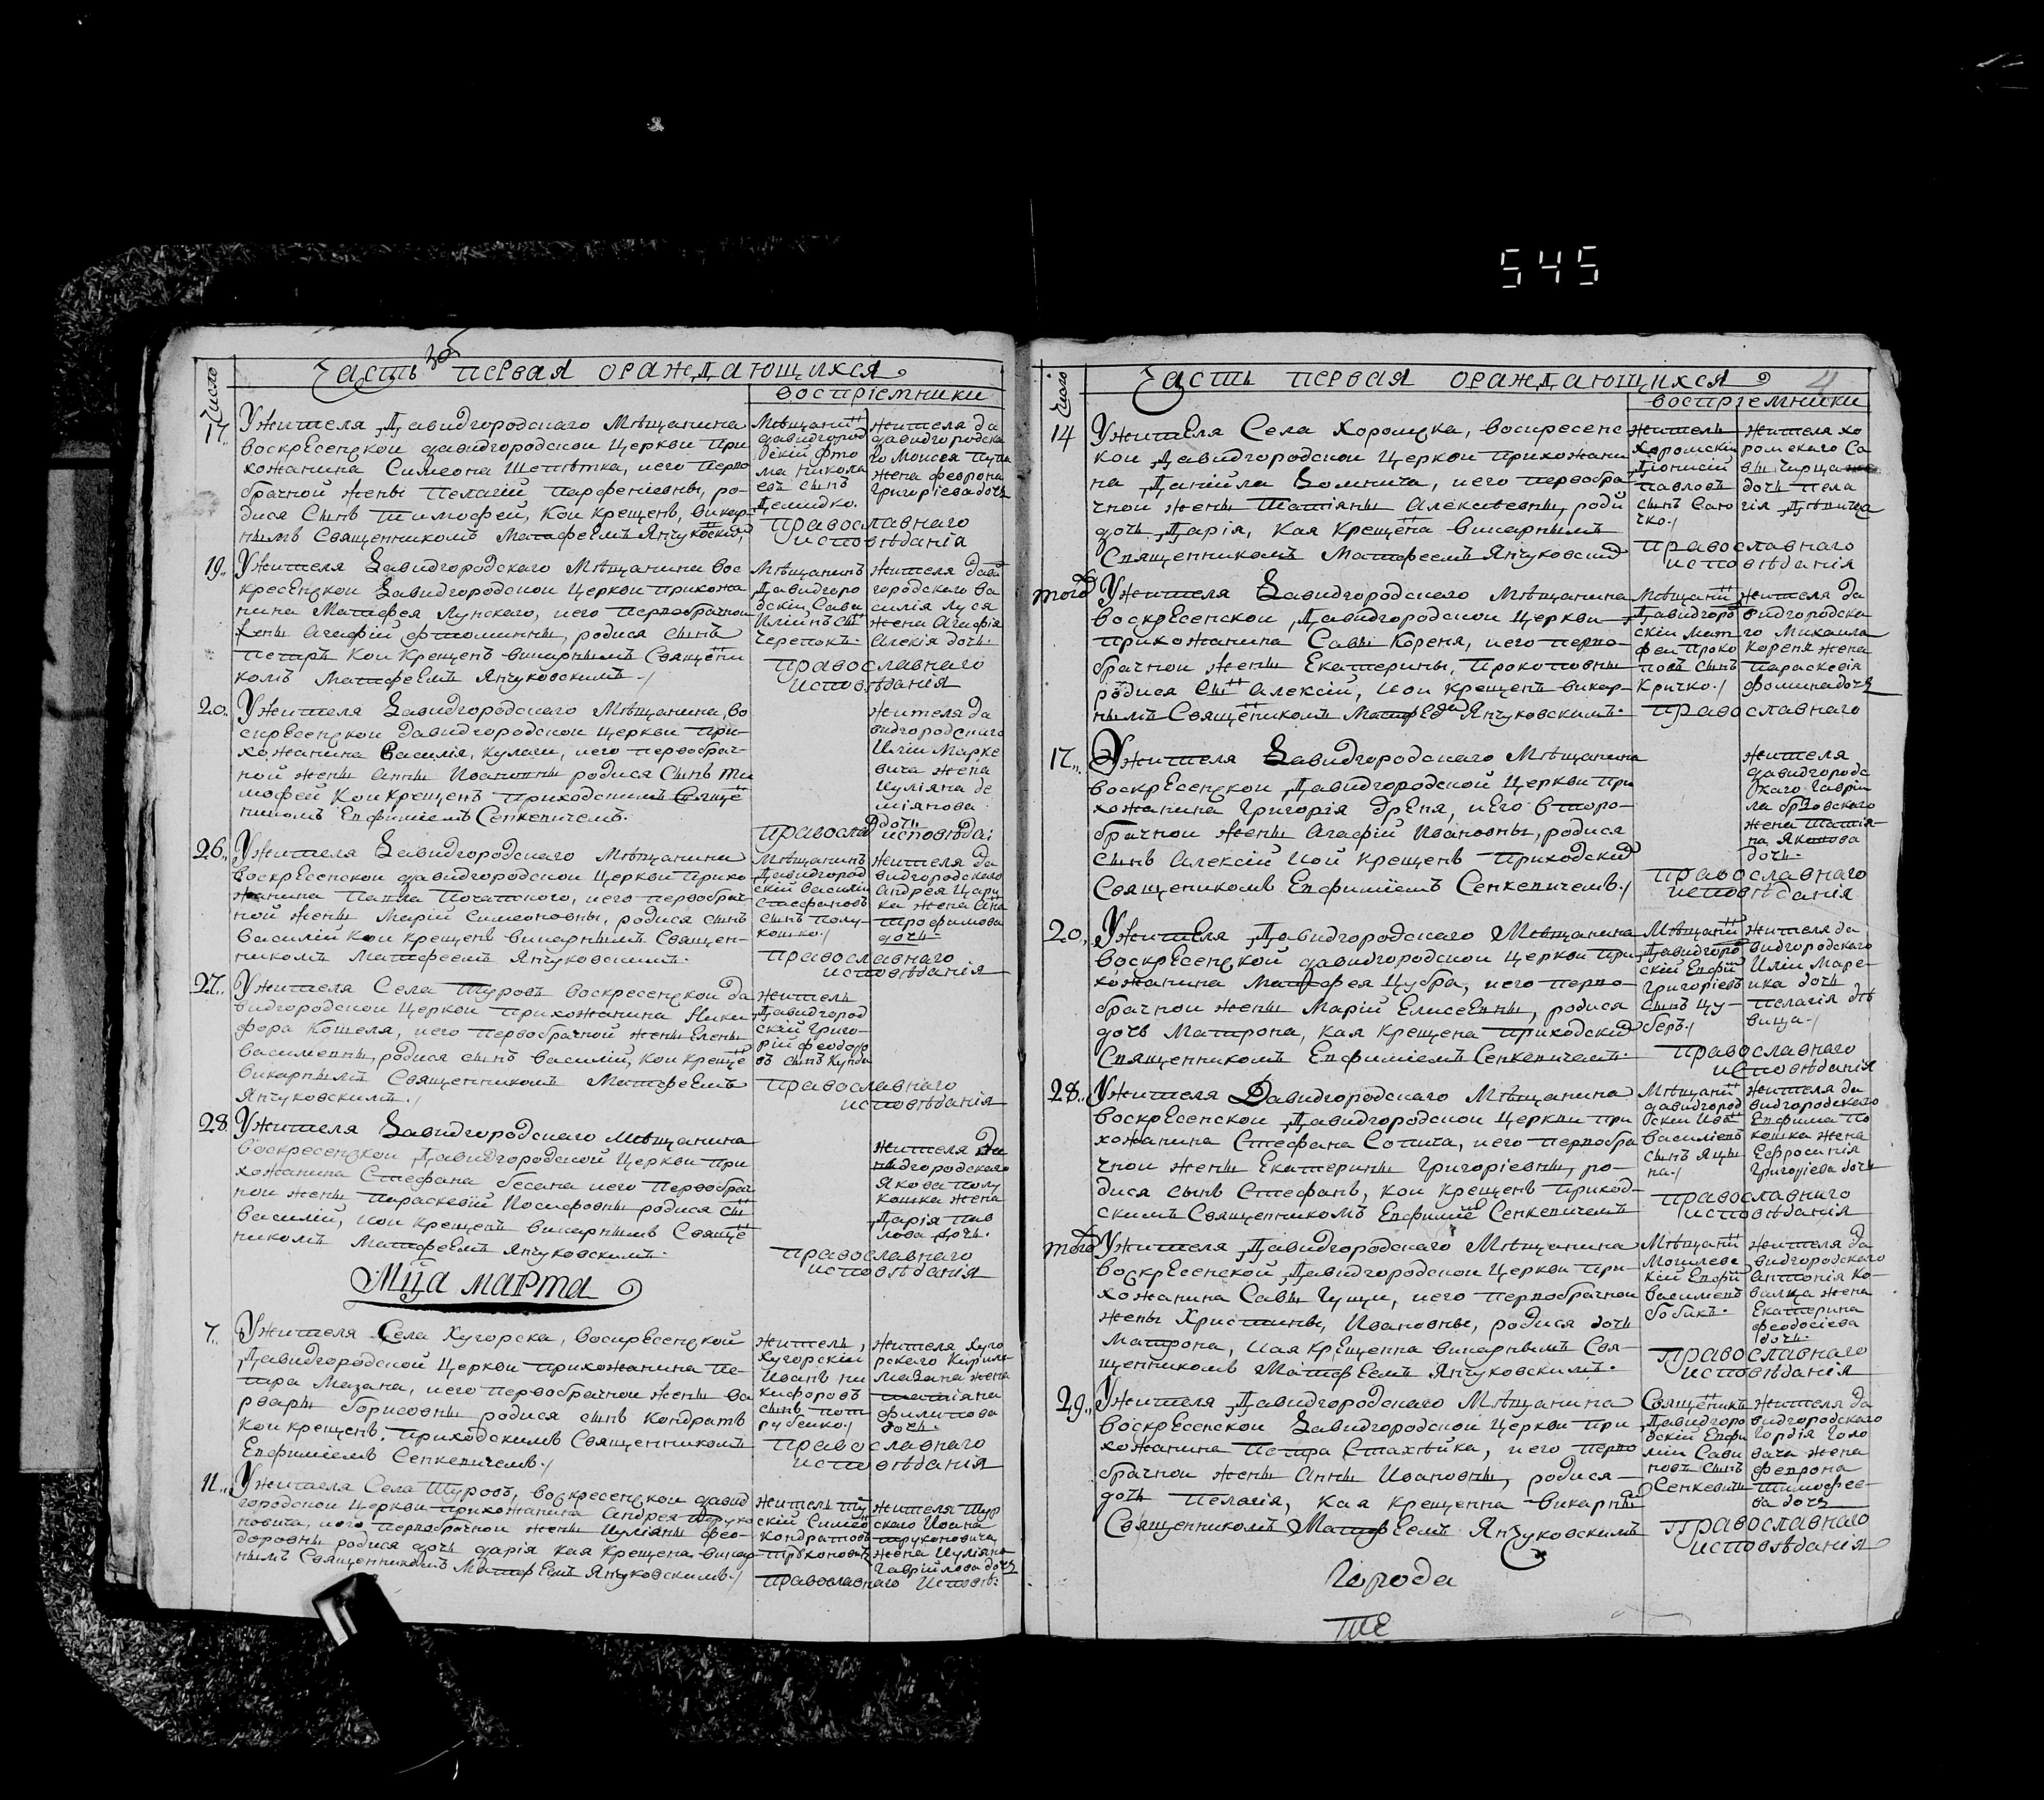 545
Часть первая ораждающихся
Число
воспрiемники
17.
Ужителя Давидгородскаго Мѣщанина
воскресенской давидгородской Церкви При
хожанина Симеона Шепѣтка, иего перво
брачной жены Пелагiй Парфенiевны, ро-
дися Сынъ Тимофей, кои крещенъ, викар-
нымъ Священникомъ Матфеемъ Янчуковскимъ
Мѣщанинъ
давидгород
скiй Фто
ма Никола
евъ сынъ
Демидко.
жителя да
видгородска
го Моисея
жена Феврона
Григорiева дочь
Православнаго
исповѣданiя
19.
Ужителя Давидгородскаго Мѣщанина вос
кресенской Давидгородской Церкви прихожа
нина Матфея Лунскаго, иего первобрачной
жены Агафiй Фтоминны, родися сынъ
Петръ кои крещенъ викарнымъ Священи
комъ Матфеемъ Янчуковскимъ
Мѣщанинъ
Давидгоро
дскiй Сава
Илiинъ сы
Черепокъ.
жителя дави
городскаго Ва
силiя Луся
жена Агафiя
Алекiя дочь.
Православнаго
исповѣданiя
20.
Ужителя Давидгородскаго Мѣщанина, во
скресенской Давидгородской Церкви при-
хожанина Василiя, Кулаги, иего первобрач-
ной жены Анны Ивановны родися Сынъ Ти
мофей кои крещенъ Приходскимъ Свяще
никомъ Евфимiемъ Сенкевичемъ.
жителя да
видгородскаго
Илiи Марке
вича жена
Иулiяна де
мiянова
дочь
Православ исповѣда:
26.
Ужителя Давидгородскаго Мѣщанина
воскресенской давидгородской Церкви Прихо
жанина Павла Почапского, иего первобрач
ной жены Марiй Симеоновны, родися сынъ
Василiй кои крещенъ викарнымъ Священ-
никомъ Матфеемъ Янчуковскимъ.
Мѣщанинъ
Давидгород
скiй Василiй
Стефановъ
сынъ Полу-
кошко.
жителя да
видгородскаго
Андрея Цару
ка жена Анна
Трофимова
дочь
Православнаго
исповѣданiя
27.
Ужителя Села Туровъ воскресенской да
видгородской Церкви прихожанина Ники
фора Кошеля, иего первобрачной жены Елены
Василiевны, родися сынъ Василiй, кои креще
викарнымъ Священникомъ Матфеемъ
Янчуковскимъ.
житель
Давидгород
скiй Григо-
рiй Феодоро
въ сынъ Кунда
Православнаго
исповѣданiя
28.
Ужителя Давидгородскаго Мѣщанина
воскресенской Давидгородской Церкви при
хожанина Стефана Бесана иего первобрач
ной жены Параскевiй Иосифовны родися сы
Василiй, кои крещенъ викарнымъ Свяще
никомъ Матфеемъ Янчуковскимъ.
жителя Да
видгородскаго
Якова Полу
кошка жена
Дарiя Пав
лова дочь.
Православнаго
исповѣданiя
Мца марта
7.
Ужителя Села Хугорска, воскресенской
Давидгородской Церкви прихожанина Пе
тра Мазана, иего первобрачной жены Ва
рвары Борисовны родися сынъ Кондратъ
кои крещенъ, приходскимъ Священникомъ
Евфимiемъ Сенкевичемъ.
житель,
Хугорскiй
Иванъ Ни
кифоровъ
сынъ Пот
рубейко.
жителя Хуго
рскаго Кирила
Мазана жена
Татiана
Филипова
дочь.
Православнаго
исповѣданiя
11.
Ужителя Села Туровъ, воскресенской давид
городской Церкви прихожанина Андрея Труко
новича, иего первобрачной жены Иулiяны Фео-
доровны родися дочь дарiя кая крещена викар
нымъ Священникомъ Матфеемъ Янчуковскимъ.
житель Ту
скiй Симео
Кондратовъ
Труконовичъ
жителя Тур
скаго Иоана
Труконовича
жена Иулiяна
Гаврiилова дочь
Православнаго Исповѣ:
Часть первая ораждающихся
4
Число
воспрiемники
14
Ужителя Села Хоромска, воскресенс
кой Давидгородской Церкви прихожани
на Данiйла Вомнича, иего первобра
чной жены Татiяны Алексѣевны, роди
дочь Дарiя, кая крещена викарнымъ
Священникомъ Матфеемъ Янчуковским
житель
Хоромскiй
Дiонисiй
Павловъ
сынъ Саю
чко.
жителя хо
ромскаго Са
вы Чирца
дочь Пела
гiя Дѣвица
Православнаго
исповѣданiя
тогож
Ужителя Давидгородскаго Мѣщанина
воскресенской Давидгородской Церкви
прихожанина Савы Кореня, иего перво-
брачной жены Екатерины, Прокоповны
родися сы Алексiй, кои крещенъ викар-
нымъ Священикомъ Матфеемъ Янчуковскимъ.
Мѣщани
Давидгоро
скiй Мат
фей Проко
повъ сынъ
Кричко.
жителя да
видгородска
го Михаила
Кореня жена
Параскевiя
Фомина дочь
Православнаго
17.
Ужителя Давидгородскаго Мѣщанина
воскресенской Давидгородской Церкви При
хожанина Григорiя Дреня, иего второ-
брачной жены Агафiй Ивановны, родися
сынъ Алексiй кой крещенъ Приходским
Священикомъ Евфимiемъ Сенкевичемъ.
жителя
давидгородс
каго Гаврiи
ла
жена Татiя-
на Яковова
дочь.
Православнаго
исповѣданiя
20.
Ужителя Давидгородскаго Мѣщанина
воскресенской давидгородской Церкви При
хожанина Матфея Цубра, иего перво-
брачной жены Марiй Елисеевны, родися
дочь Матрона, кая крещена Приходским
Священникомъ Евфимiемъ Сенкевичемъ.
Мѣщани
Давидгоро
скiй Евфи
Григорiевъ
сынъ Цу-
беръ.
жителя да
видгородскаго
Илiи Маре-
ика дочь
Пелагiя дѣ
вица.
Православнаго
исповѣданiя
28.
Ужителя Давидгородскаго Мѣщанина
воскресенской Давидгородской Церкви при
хожанина Стефана Сопита, иего первобра
чной жены Екатерины Григорiевны, ро-
дися сынъ Стефанъ, кои крещенъ приход-
скимъ Священникомъ Евфимiе Сенкевичемъ
Мѣщани
давидгород
скiй Ива
Василiевъ
сынъ Яцы
на.
жителя да
видгородскаго
Евфима По
кошка жена
Ефросинiя
Григорiева дочь
Православнаго
исповѣданiя
тогож
Ужителя Давидгородскаго Мѣщанина
воскресенской Давидгородской Церкви при-
хожанина Савы Гущи, иего первобрачной
жены Христины, Ивановны, родися дочь
Матрона, кая крещенна викарнымъ Свя-
щенникомъ Матфеемъ Янчуковскимъ.
Мѣщани
Могилевс
кiй Евфи
Василiевъ
Бобикъ.
жителя да
видгородскаго
Антонiя Ко-
валца жена
Екатерина
Феодосiева
дочь.
Православнаго
исповѣданiя
29.
Ужителя Давидгородскаго Мѣщанина
воскресенской Давидгородской Церкви при
хожанина Петра Стахѣйка, иего перво
брачной жены Анны Ивановны, родися
дочь Пелагiя, кая крещенна викарным
Священникомъ Матфеемъ Янчуковскимъ
Священикъ
Давидгоро
дскiй Евфи
мiй Сави
новъ сынъ
Сенкевичъ
жителя да
видгородскаго
Гордiя Голо
вача жена
Феврона
Тимофее-
ва дочь
Православнаго
исповѣданiя
Города